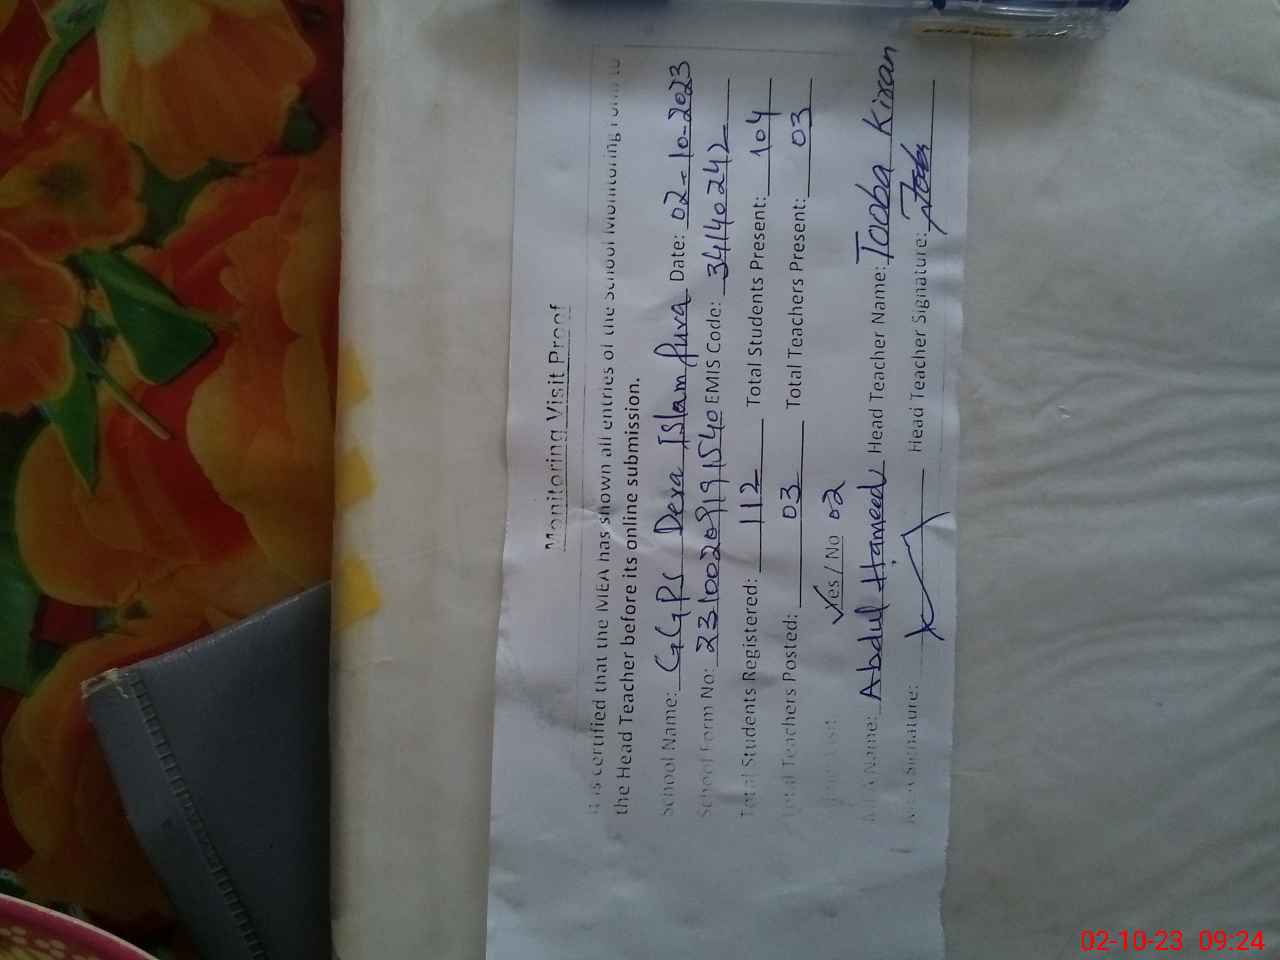 Monitoring Visit Proof
It is certified that the MEA has shown all entries of the School Monitoring Form to
the Head Teacher before its online submission.
School Name: GGPS Dera Islam Pura Date: 02-10-2023
School Form No: 23100209191540 EMIS Code: 34140242
Total Students Registered: 112 Total Students Present: 104
Total Teachers Posted: 03 Total Teachers Present: 03
Yes / No 02
MEA Name: Abdul Hameed Head Teacher Name: Tooba Kiran
MEA Signature: Head Teacher Signature: Tooba
02-10-23 09:24